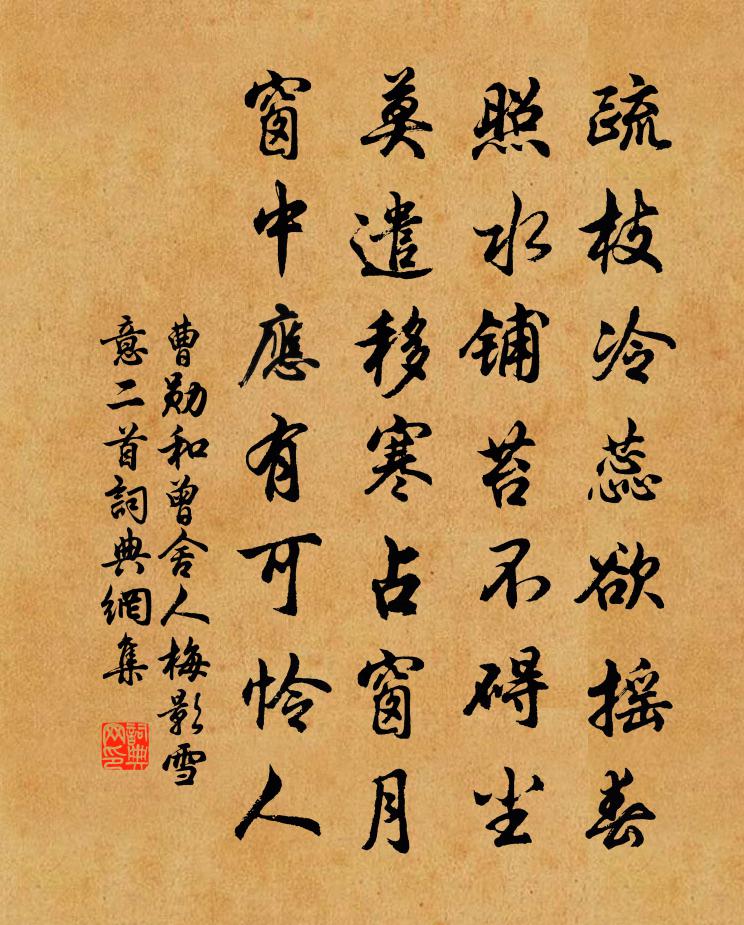 疏枝冷蕊欲摇春
照水鋪苔不碍尘
莫遣移寒占窗月
窗中應有可怜人
曹勋和曾舍人梅影雪
意二首詞典網集
詞典网印